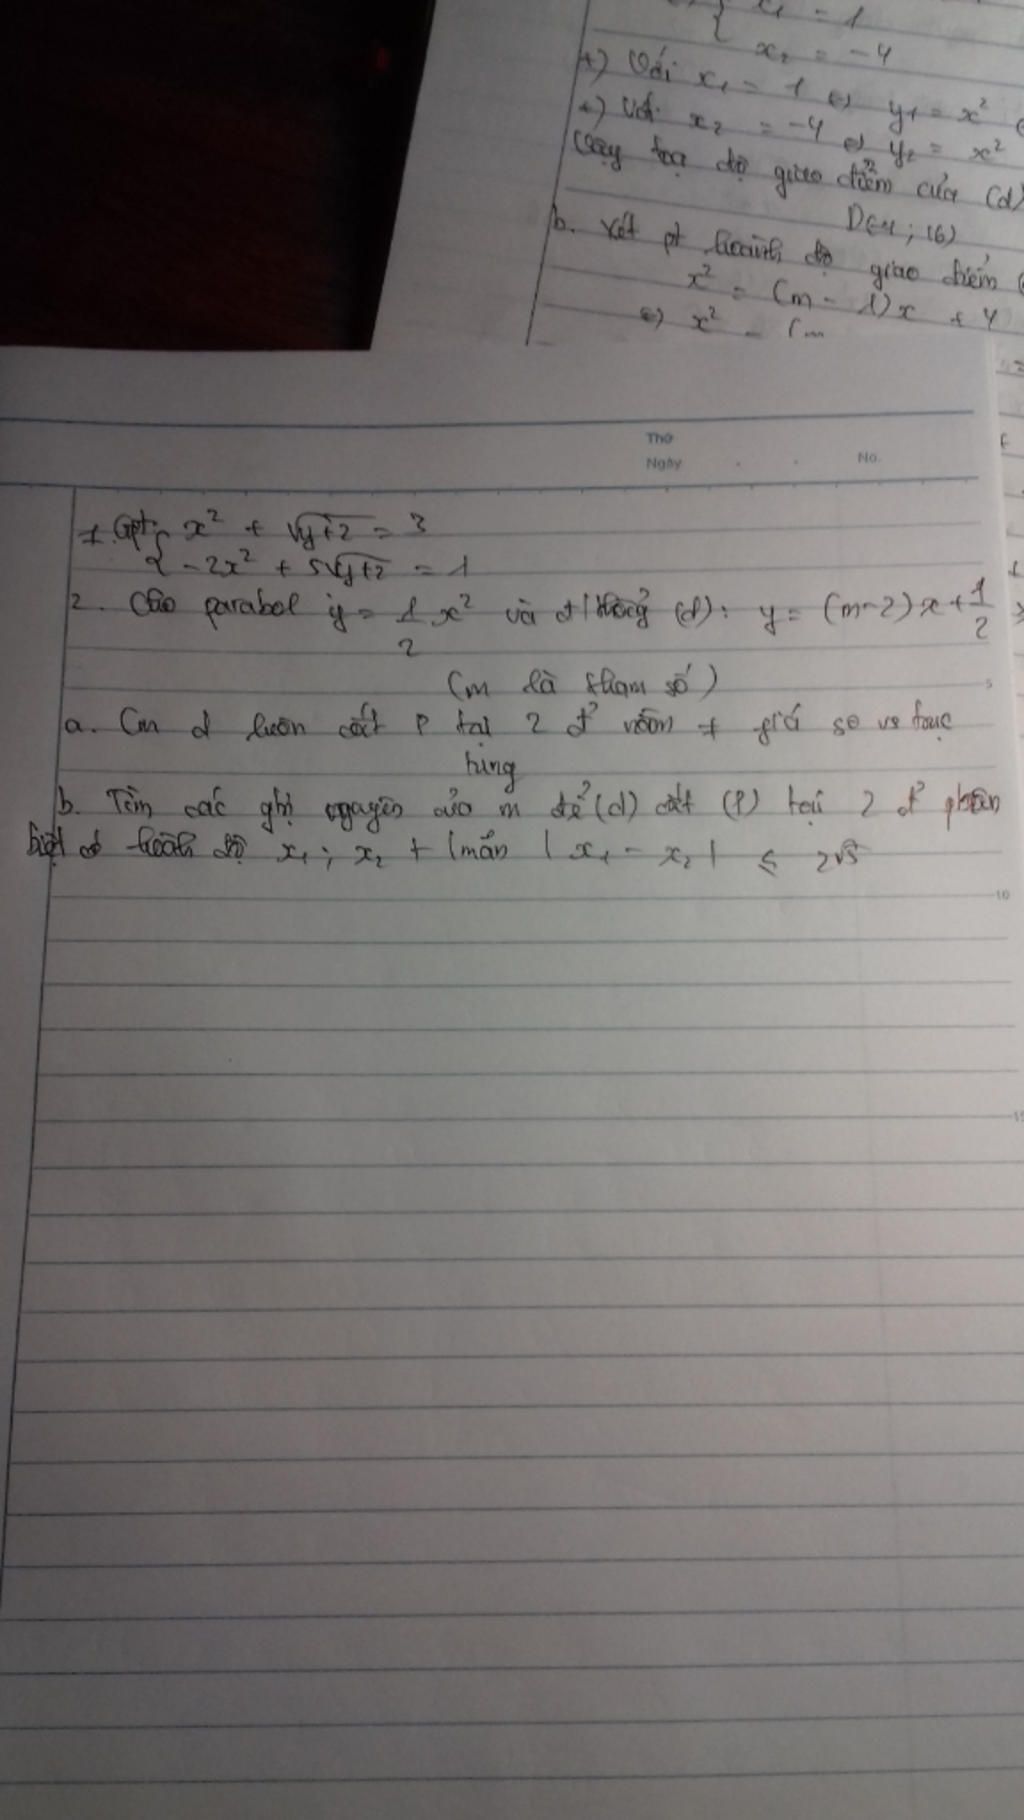 x₁ = 1
x₂ = -4
+) Với x₁ = 1 ⇔ y₁ = x²
+) Với x₂ = -4 ⇔ y₂ = x²
Vậy toạ độ giao điểm của (d)
D(-4; 16)
b. Xét pt hoành độ giao điểm
x² = (m - 1)x + 4
⇔ x² - (m
Thứ
Ngày . . No.
1. Gpt: { x² + √y+2 = 3
-2x² + 5√y+2 = 1
2. Cho parabol y = 1/2 x² và đ/thẳng (d): y = (m-2)x + 1/2
(m là tham số)
5
a. Cm d luôn cắt P tại 2 đ² giá so vs trục
tung
b. Tìm các gtrị nguyên của m để (d) cắt (P) tại 2 đ² phân
biệt có hoành độ x₁; x₂ t/mãn | x₁ - x₂ | ≤ 2√5
10
15